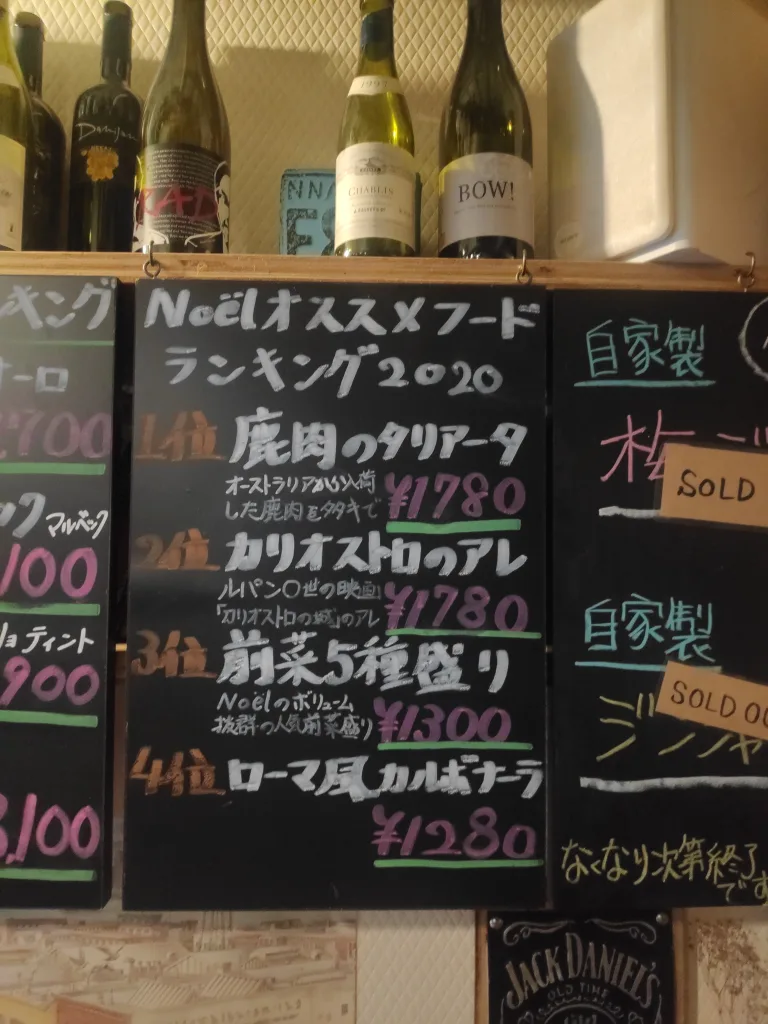 Damijan
RAD
CHABLIS
BOW!
NNA
キング
ーロ
2700
ック マルベック
100
ョ ティント
900
3,100
Noëlオススメフード
ランキング2020
1位 鹿肉のタリアータ
オーストラリアから入荷
した鹿肉をタタキで
¥1780
2位 カリオストロのアレ
ルパン〇世の映画
「カリオストロの城」のアレ
¥1780
3位 前菜5種盛り
Noëlのボリューム
抜群の人気前菜盛り
¥1300
4位 ローマ風カルボナーラ
¥1280
自家製
梅
SOLD
自家製
ジンジャ
SOLD OU
なくなり次第終了
です
JACK DANIEL'S
OLD TIME